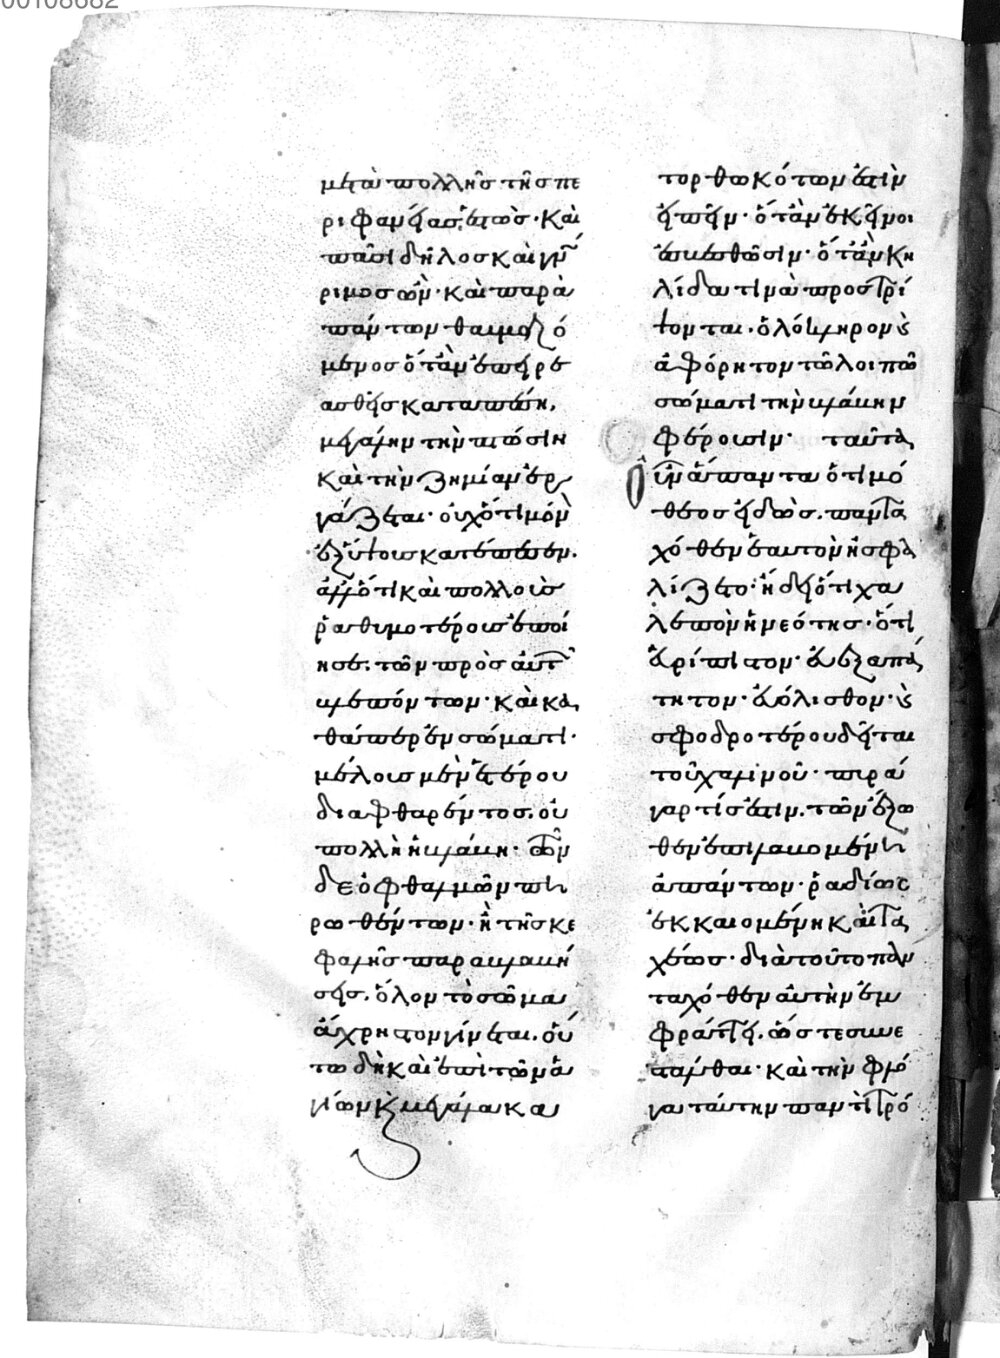 00108682
μετὰ πολλῆς τῆς πε
ριφανείας ἑστὼς· καὶ
πᾶσι δῆλος καὶ γνώ
ριμος ὢν· καὶ παρὰ
πάντων θαυμαζό
μενος ὅταν ἐπηρε
ασθεὶς καταπέσῃ,
μεγάλην τὴν πτῶσιν
καὶ τὴν ζημίαν ἐρ
γάζεται· οὐχ ὅτι μόνον
ἐξ ὕψους κατέπεσεν.
ἀλλ' ὅτι καὶ πολλοὺς
ῥαθυμοτέρους ἐποί
ησε. τῶν πρὸς αὐτὸν
βλεπόντων· καὶ κα
θάπερ ἐν σώματι·
μέλους μὲν ἑτέρου
διαφθαρέντος. οὐ
πολλὴ ἡ βλάβη· τῶν
δὲ ὀφθαλμῶν πη
ρωθέντων· ἢ τῆς κε
φαλῆς παραβλαβεί
σης. ὅλον τὸ σῶμα
ἄχρηστον γίνεται. οὕ
τω δὴ καὶ ἐπὶ τῶν ἁ
γίων κ μεγάλα κα
τορθωκότων ἔστιν
εἰπεῖν· ὅταν ἐκεῖνοι
σβεσθῶσιν· ὅταν κη
λίδα τινὰ προστρί
ψονται. ὁλόκληρον κ
ἀφόρητον τῷ λοιπῷ
σώματι τὴν βλάβην
φέρουσιν· ταῦτα
οὖν ἅπαντα ὁ τιμό
θεος εἰδὼς. παντα
χόθεν ἑαυτὸν ἠσφα
λίζετο· ᾔδει ὅτι χα
λεπὸν ἡ νεότης· ὅτι
εὐρίπιστον· εὐεξαπά
τητον· εὐόλισθον· κ
σφοδροτέρου δεῖται
τοῦ χαλινοῦ· πυρὰ
γάρ τίς ἐστιν. τῶν ἔξω
θεν ἐπιλαβομένη
ἁπάντων· ῥαδίως
ἐκκαιομένη καὶ τα
χέως· διὰ τοῦτο παν
ταχόθεν αὐτὴν ἐν
φράττει. ὥστε συνε
σταλθαι· καὶ τὴν φλό
γα ταύτην παντὶ τρό